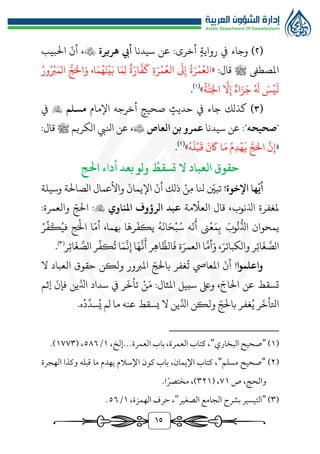 إدارة الشؤون العربية
Arabic Department Of Dawateislami
(٢) وجاء في روايةٍ أخرى: عن سيدنا أبي هريرة ﵁، أنّ الحبيب
المصطفى ﷺ قال: «العُمْرَةُ إِلَى العُمْرَةِ كَفَّارَةٌ لِمَا بَيْنَهُمَا، وَالحَجُّ المَبْرُورُ
لَيْسَ لَهُ جَزَاءٌ إِلَّا الجَنَّةُ»(١).
(٣) كذلك جاء في حديثٍ صحيح أخرجه الإمام مسلم ﵀ في
"صحيحه": عن سيدنا عمرو بن العاص ﵁، عن النبي الكريم ﷺ قال:
«إِنَّ الحَجَّ يَهْدِمُ مَا كَانَ قَبْلَهُ»(٢).
حقوق العباد لا تسقطُ ولو بعد أداء الحج
أيّها الإخوة! تبيّن لنا مِنْ ذلك أنّ الإيمانَ والأعمال الصالحة وسيلة
لمغفرة الذنوب، قال العلّامة عبد الرؤوف المناوي ﵀: الحجّ والعمرة:
يمحوان الذُّنُوبَ بِمَعْنَى أَنَّه سُبْحَانَهُ يكفّرهَا بهما، أمّا الْحجّ فيُكَفِّرُ
الصَّغَائِرَ والكبائرَ، وأمَّا العمرَة فَالظَّاهِر أَنَّهَا إِنَّمَا تُكفِّر الصَّغَائِر(٣).
واعلموا! أنّ المعاصي تُغفر بالحجّ المبرور ولكن حقوق العباد لا
تسقط عن الحاجّ، وعلى سبيل المثال: مَنْ تأخّر في سداد الدَّين فإنّ إثم
التأخّر يُغفر بالحجّ ولكن الدَّين لا يسقط عنه ما لم يُسدِّدْه.
(١) "صحيح البخاري"، كتاب العمرة، باب العمرة...إلخ، ١/ ٥٨٦، (١٧٧٣).
(٢) "صحيح مسلم"، كتاب الإيمان، باب كون الإسلام يهدم ما قبله وكذا الهجرة
والحج، ص ٧١، (٣٢١)، مختصرًا.
(٣) "التيسير بشرح الجامع الصغير"، حرف الهمزة، ١/ ٥٦.
١٥